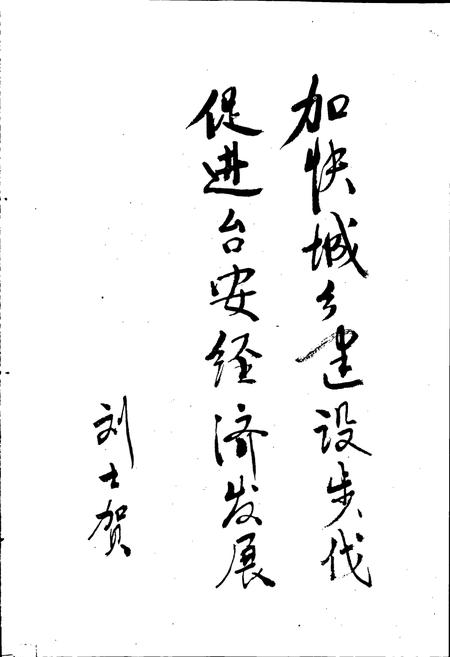 加快城乡建设步伐
促进台安经济发展
刘士贺